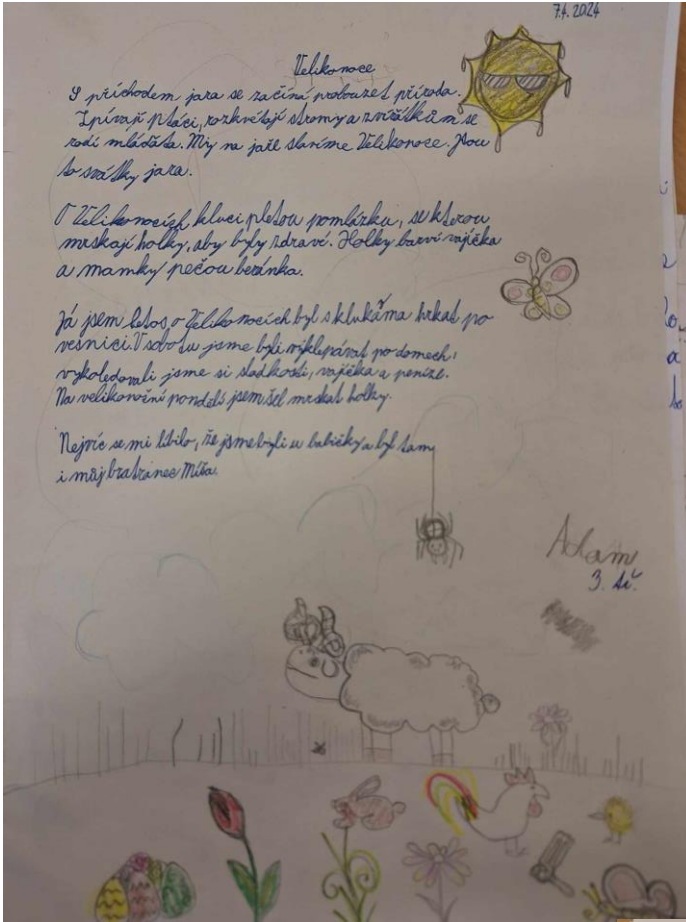 7.4.2024
Velikonoce
S příchodem jara se začíná probouzet příroda.
Zpívají ptáci, rozkvétají stromy a zvířátkům se
rodí mláďata. My na jaře slavíme Velikonoce. Jsou
to svátky jara.
O Velikonocích kluci pletou pomlázku, se kterou
mrskají holky, aby byly zdravé. Holky barví vajíčka
a mamky pečou beránka.
Já jsem letos o Velikonocích byl s klukáma hrkat po
vesnici. V sobotu jsme byli vyklepávat po domech,
vykoledovali jsme si sladkosti, vajíčka a peníze.
Na velikonoční pondělí jsem šel mrskat holky.
Nejvíc se mi líbilo, že jsme byli u babičky a byl tam
i můj bratranec Míša.
Adam
3. tř.